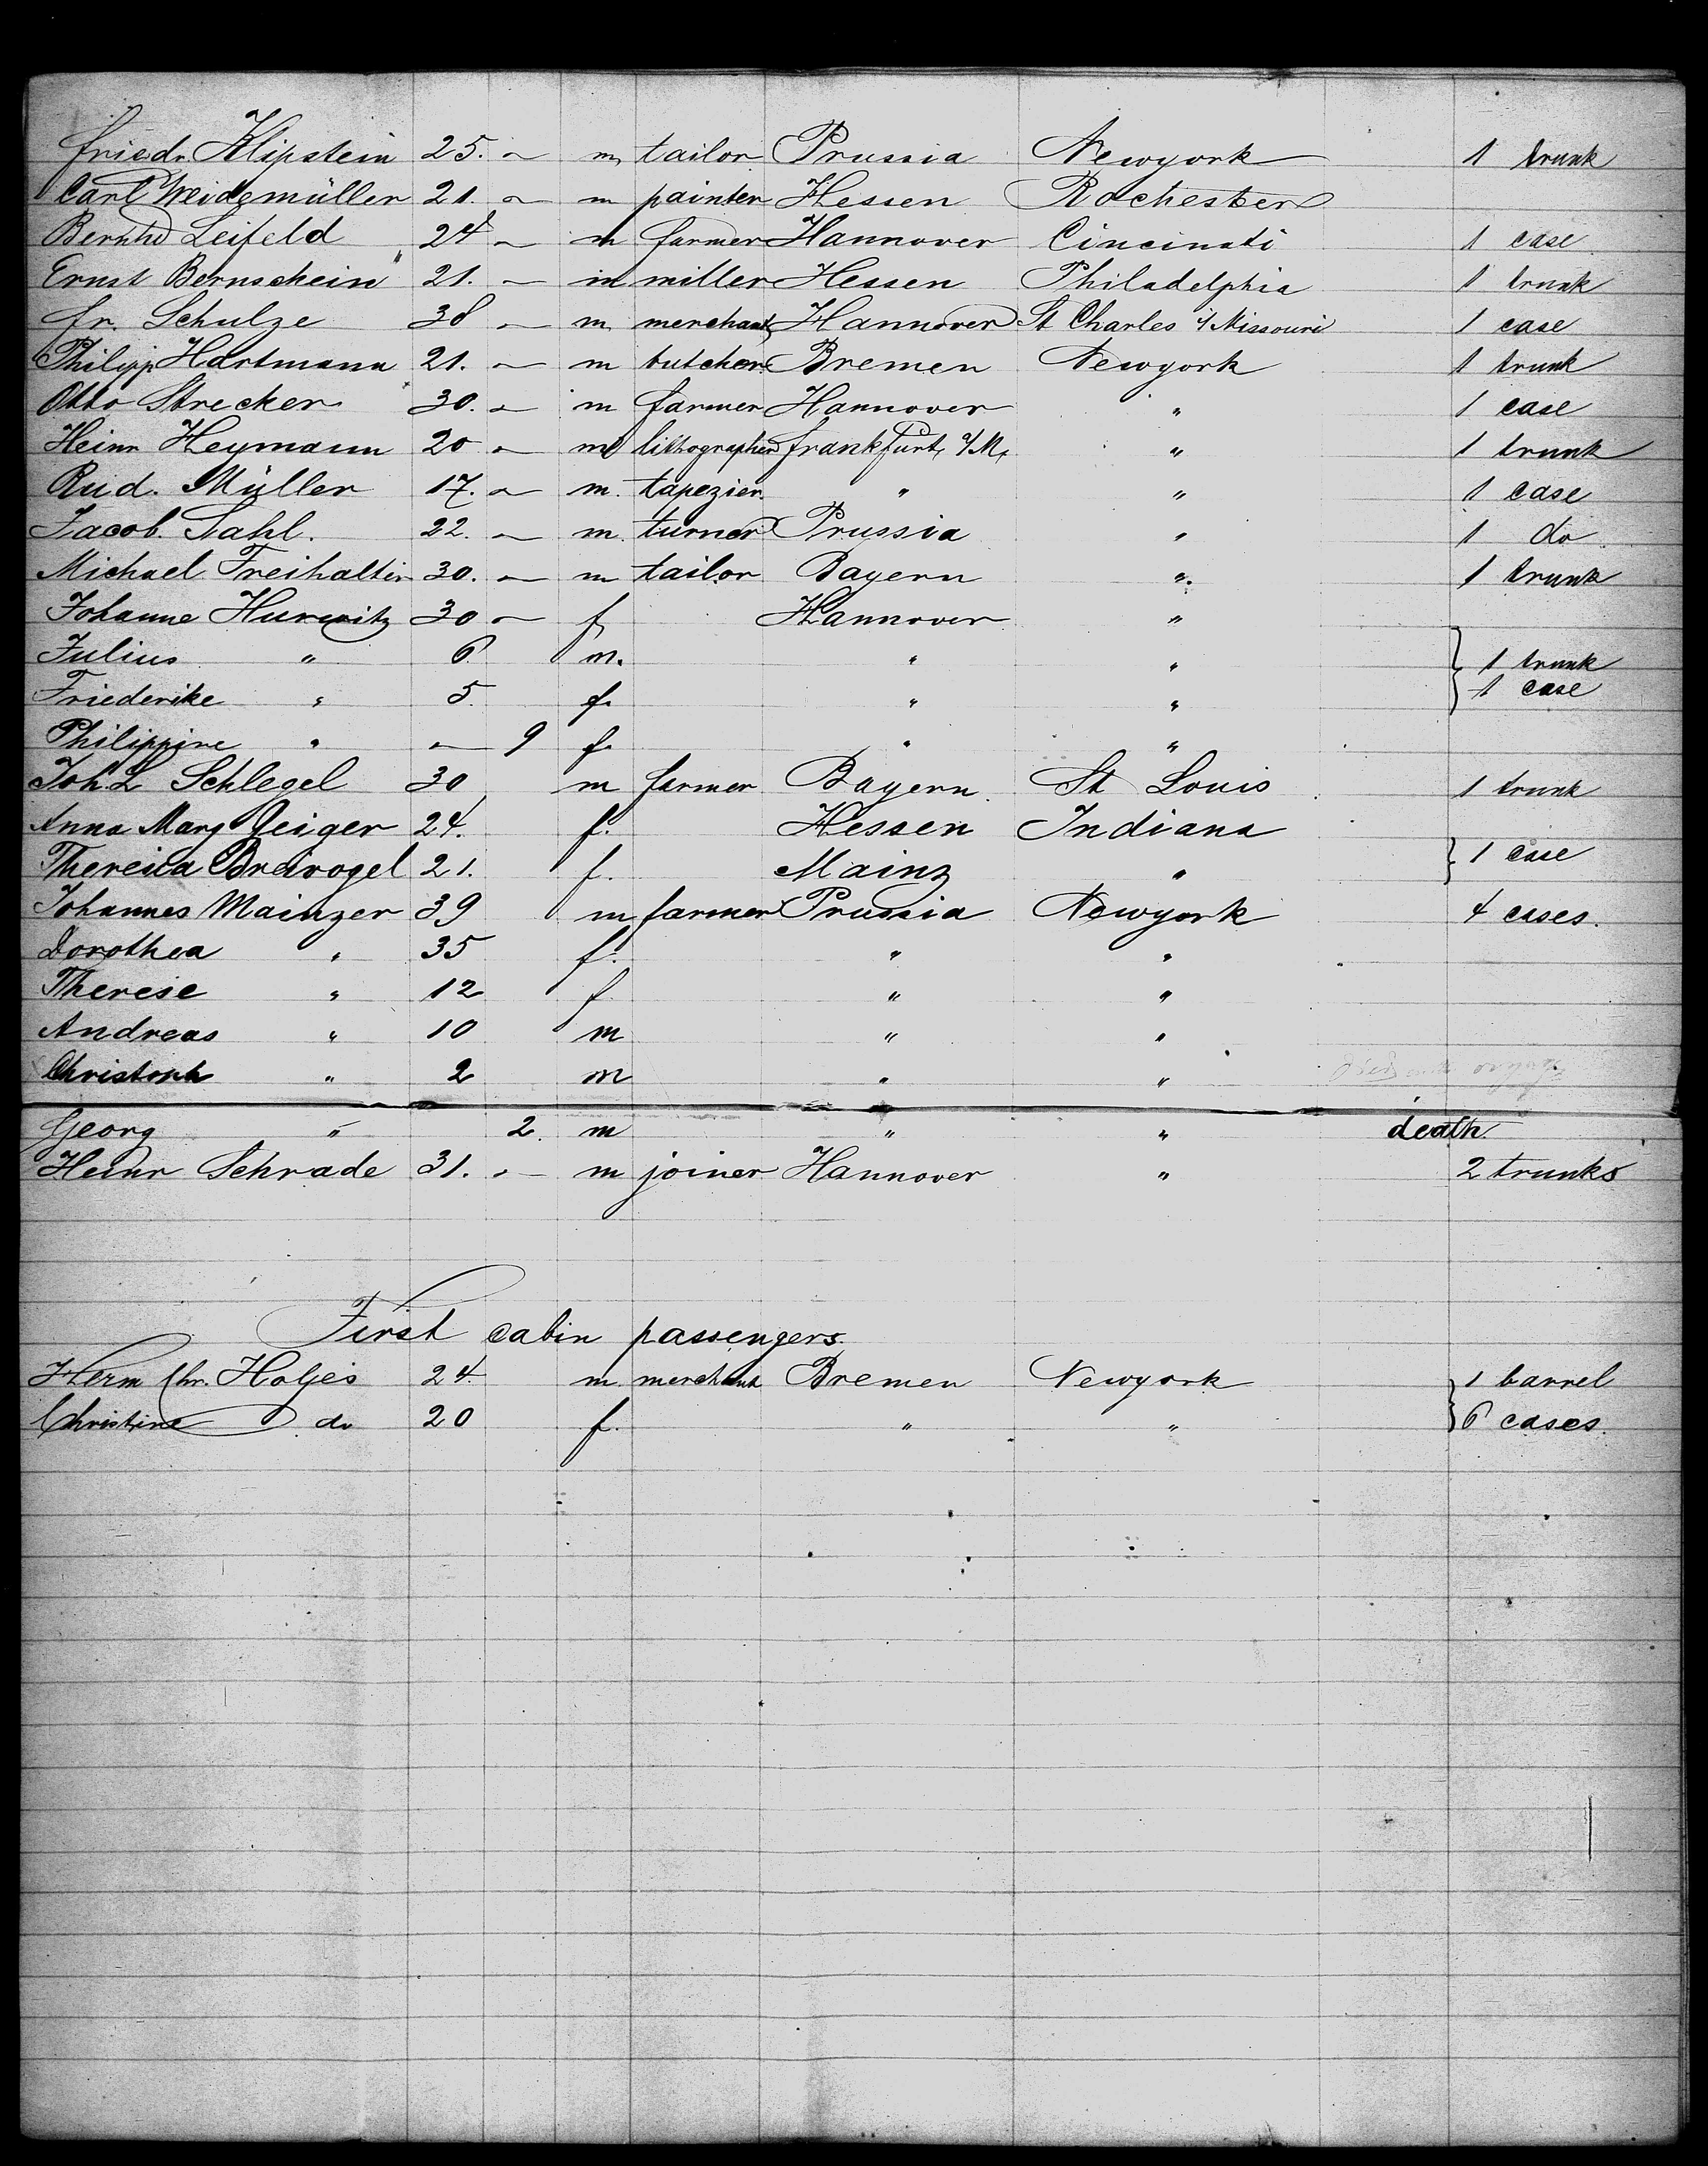 Friedr. Klipstein 25. — m tailor Prussia Newyork 1 trunk
Carl Weidemüller 21. — m painter Hessen Rochester
Bernhd Leifeld 24 — m farmer Hannover Cincinati 1 case
Ernst Bernschein 21. — m miller Hessen Philadelphia 1 trunk
Fr. Schulze 38 — m merchant Hannover St Charles i/Missouri 1 case
Philipp Hartmann 21. — m butcher Bremen Newyork 1 trunk
Otto Strecker 30. — m farmer Hannover " 1 case
Heinr Heymann 20 — m lithographer Frankfurt a/M. " 1 trunk
Rud. Müller 17. — m. tapezier " " 1 case
Jacob. Stahl. 22. — m. turner Prussia " 1 do.
Michael Freihalter 30. — m tailor Bayern " 1 trunk
Johanne Hurwitz 30 — f Hannover "
Julius " 6 m. " " 1 trunk
Friederike " 5 f. " " 1 case
Philippine " — 9 f. " "
Joh. L Schlegel 30 m farmer Bayern St Louis 1 trunk
Anna Marg Geiger 24. f. Hessen Indiana
Theresia Breivogel 21. f. Mainz " 1 case
Johannes Mainzer 39 m farmer Prussia Newyork 4 cases.
Dorothea " 35 f. " "
Therese " 12 f " "
Andreas " 10 m " "
Christoph " 2 m " "
Georg " 2. m " " death.
Heinr Schrade 31. — m joiner Hannover " 2 trunks
First cabin passengers.
Herm Chr. Holjes 24. m merchant Bremen Newyork 1 barrel
Christine do 20 f. " " 6 cases.